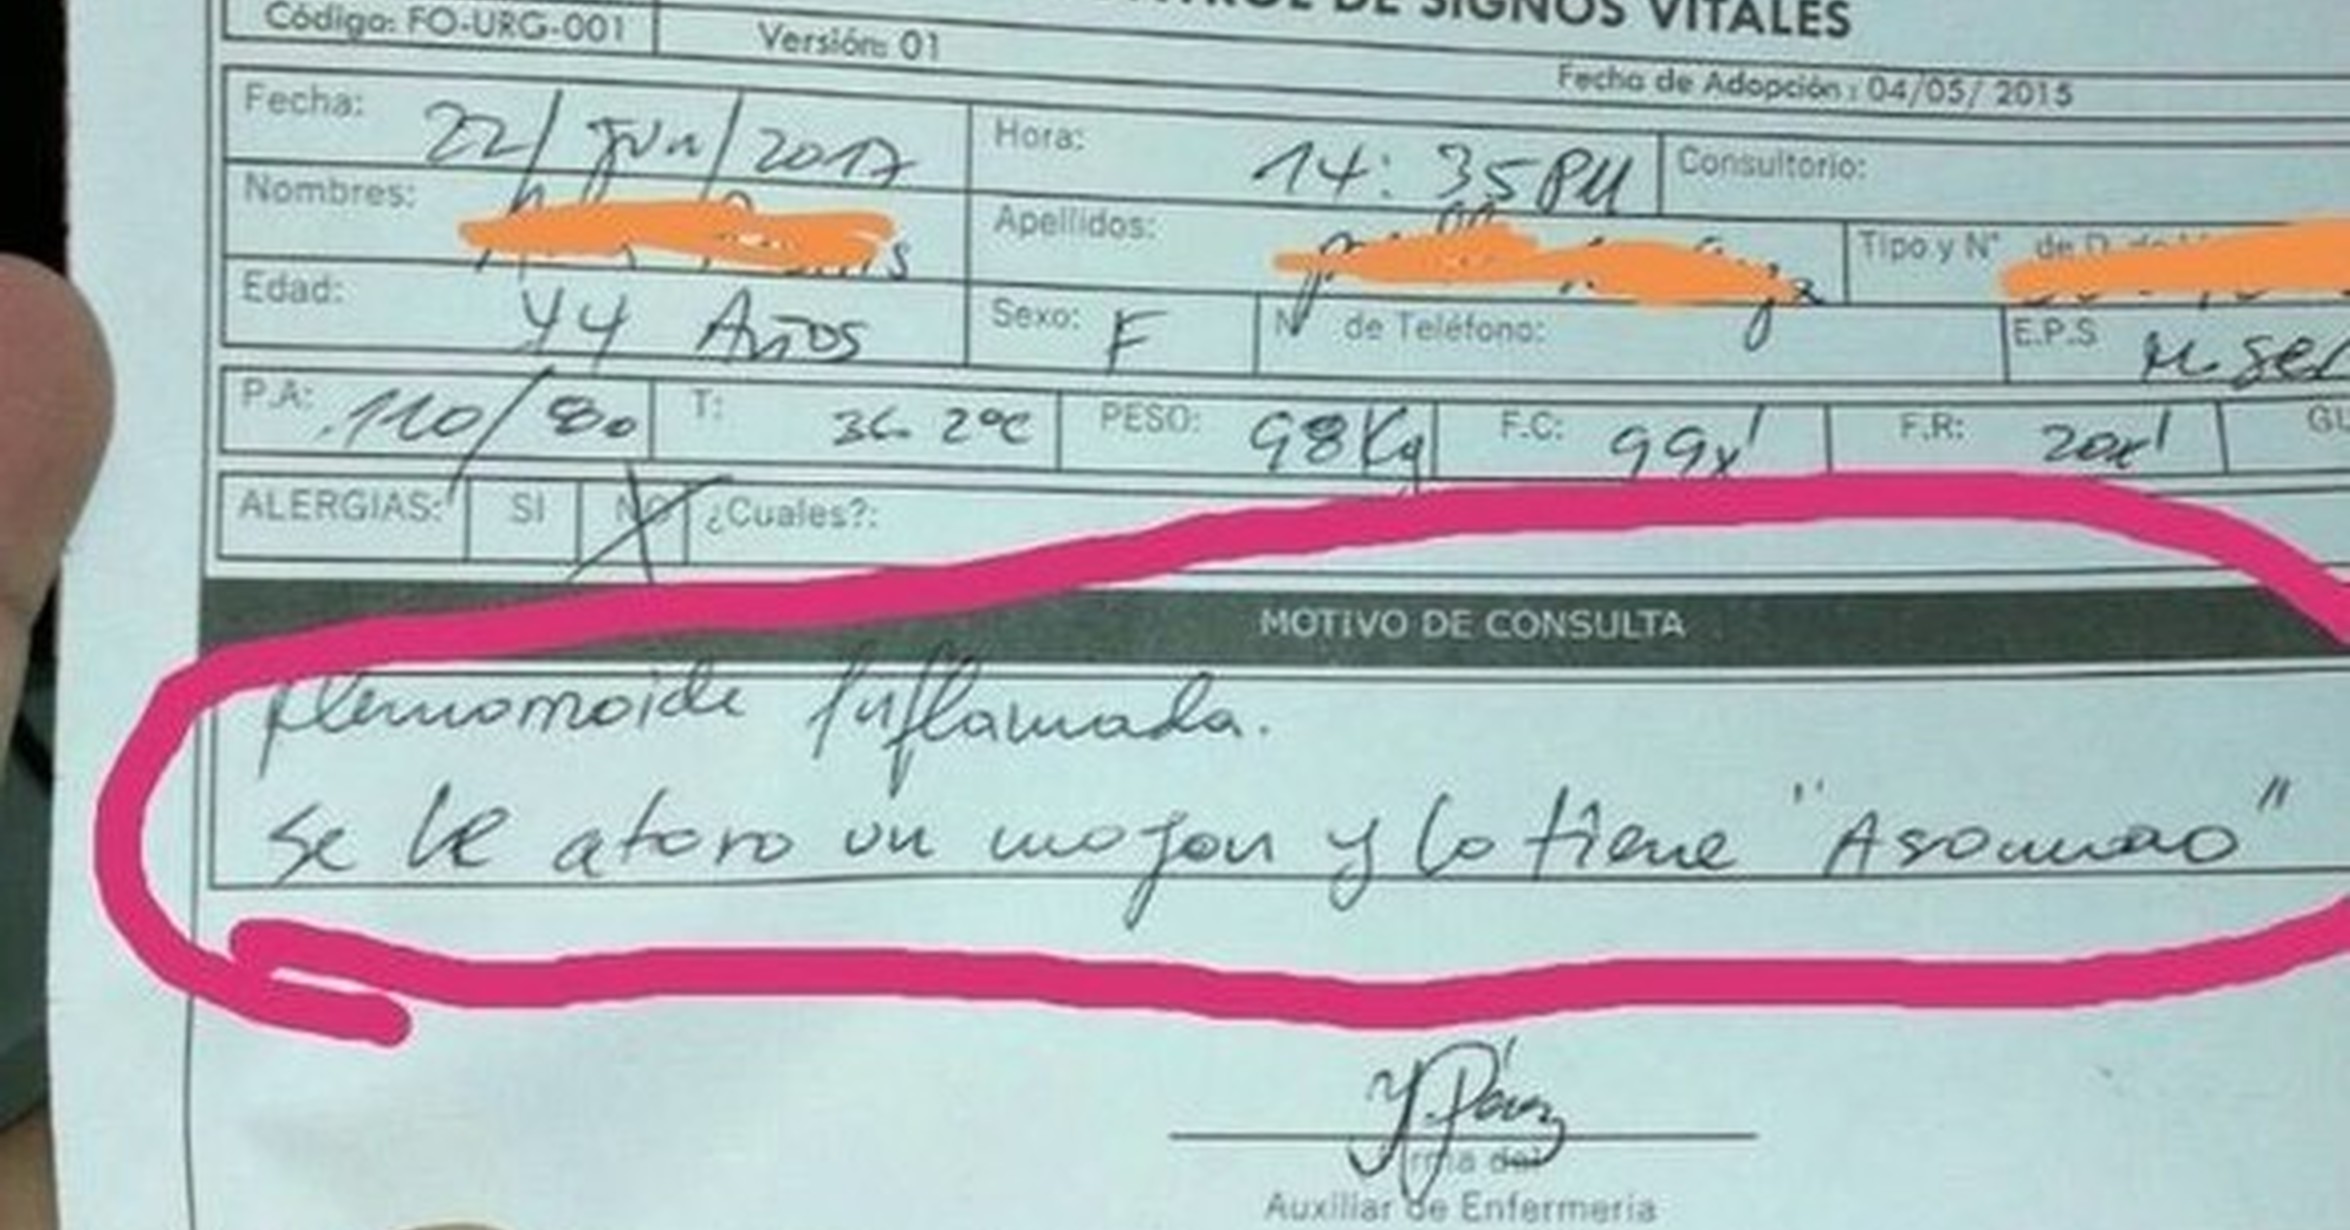 CONTROL DE SIGNOS VITALES
Código: FO-URG-001 Versión: 01
Fecha de Adopción : 04/05/ 2015
Fecha: 22/Jun/2017 Hora: 14:35PM Consultorio:
Nombres: Apellidos: Tipo y N°
Edad: 44 Años Sexo: F N° de Teléfono: E.P.S M. Ser
P.A: 110/80 T: 36.2°C PESO: 98Kg F.C: 99x' F.R: 20x' GL
ALERGIAS: SI NO ¿Cuales?:
MOTIVO DE CONSULTA
Hemorroide Inflamada.
se le atoro un mojon y lo tiene "Asomao"
Y. Pérez
Firma del
Auxiliar de Enfermeria